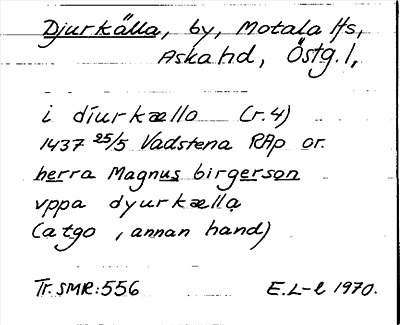 Djurkälla, by, Motala lfs,
Aska hd, Östg. l,
i diurkællo (r. 4)
1437 25/5 Vadstena RAp or.
herra Magnus birgerson
vppa dyurkælla
(atgo, annan hand)
Tr. SMR: 556 E. L-l 1970.